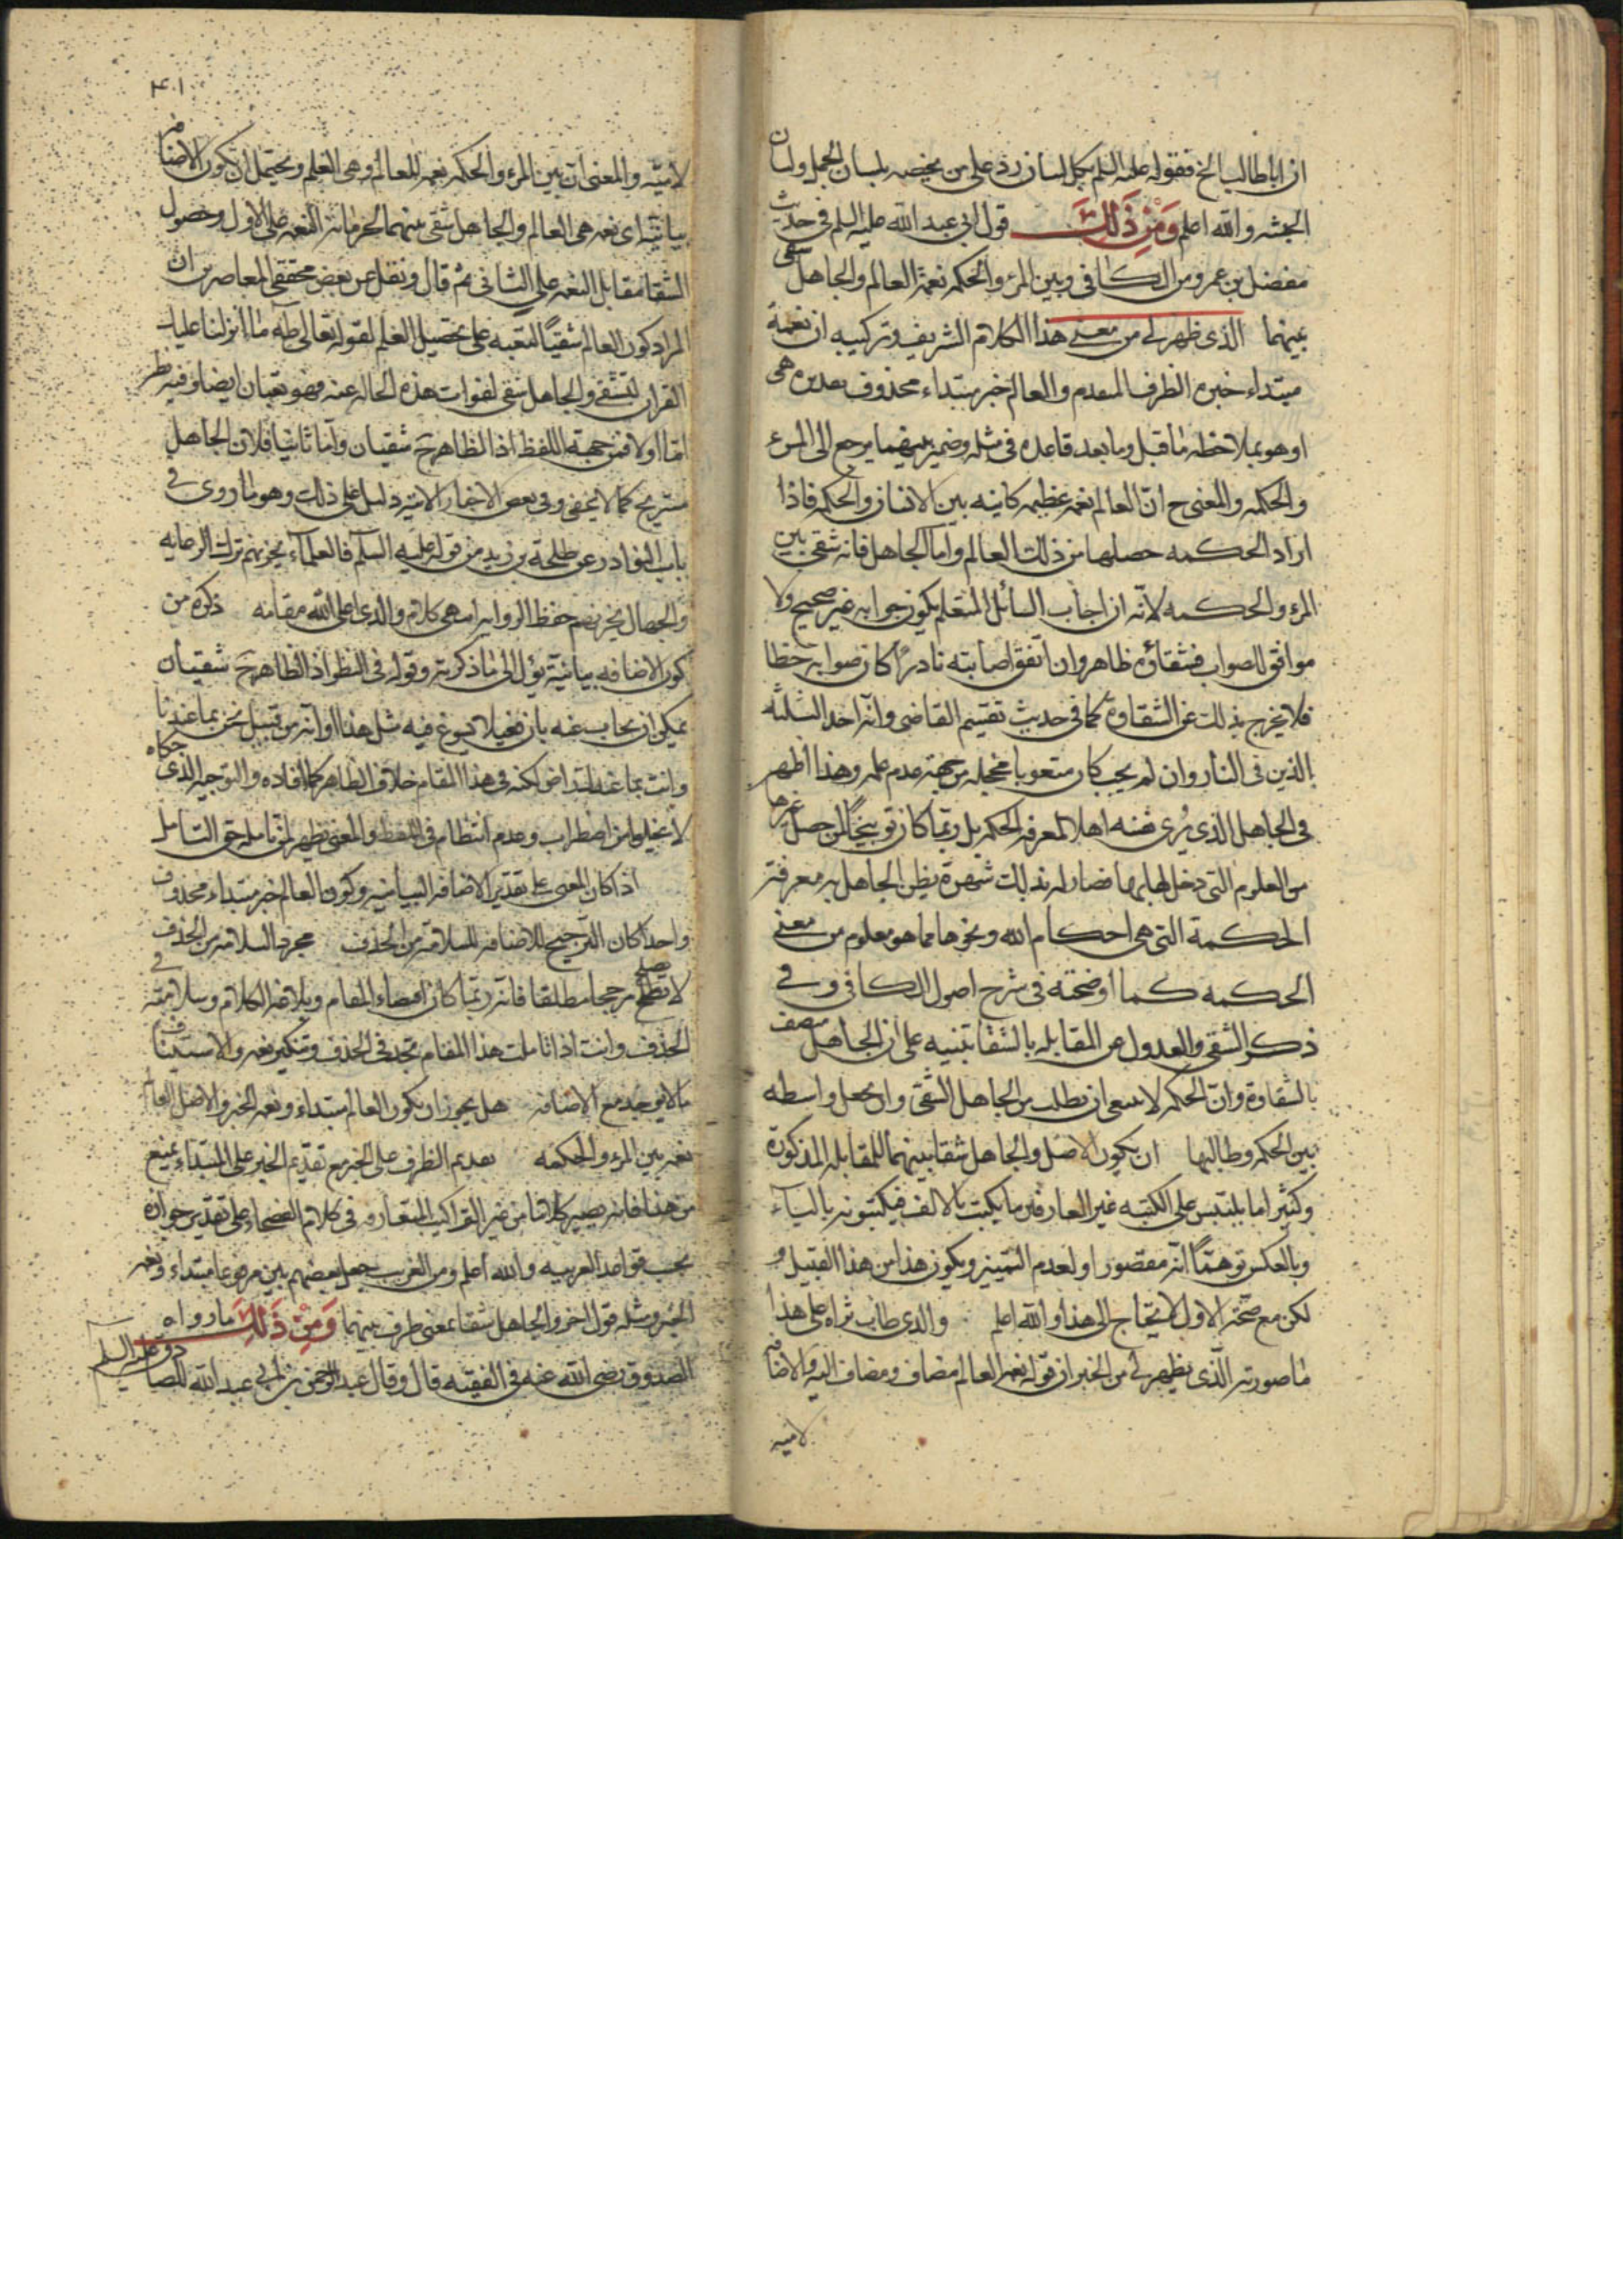 ان اباطالب الخ فقوله عليه السلم بكل لسان رد على من يخصه بلسان الجمل ولسان
الحبشه والله اعلم وَمِنْ ذَلِكَ قول ابي عبد الله عليه السلم في حديث
مفضل بن عمر ومن الكافي وبين المرء والحكمه نعمة العالم والجاهل شقى
بينهما الذى ظهر لى من معنى هذا الكلام الشريف وتركيبه ان نعمة
مبتداء خبره الظرف المقدم والعالم خبر مبتداء محذوف تقديره هى
او هو بملاحظه ما قبل وما بعد قاعده فى مثله وضمير بينهما يرجع الى المرء
والحكمه والمعنى ح انّ العالم نعمه عظيمه كاينه بين الانسان والحكمه فاذا
اراد الحكمه حصلها من ذلك العالم واما الجاهل فانه شقى بين
المرء والحكمه لانّه ان اجاب السائل المتعلم يكون جوابه غير صحيح ولا
موافق للصواب فشقاؤه ظاهر وان اتفق اصابته نادرًا كان صوابه خطا
فلا يخرج بذلك عن الشقاوة كما فى حديث تقسيم القاضى وانه احد الثلثه
الذين فى النار وان لم يجب كان متعوبا مخجله من جهة عدم علمه وهذا اظهر
فى الجاهل الذى يُرى نفسه اهلا لمعرفة الحكمه بل ربما كان توبيخًا لمن حصل غيرها
من العلوم التى دخل لها بها فصار له بذلك شهرة يظن الجاهل به معرفته
الحكمة التى هى احكام الله ونحوها مما هو معلوم من معنى
الحكمه كما اوضحته فى شرح اصول الكافى وفى
ذكر الشقى والعدول عن المقابله بالشقا تنبيه على ان الجاهل متصف
بالشقاوة وانّ الحكمه لا ينبغى ان تطلب من الجاهل الشقى وان يجعل واسطه
بين الحكمه وطالبها ان يكون الاصل والجاهل شقا بينهما للمقابله المذكورة
وكثيرا ما يلتبس على الكتبه غير العارفين ما يكتب بالالف فيكتبونه بالياء
وبالعكس توهمًا انّه مقصور او لعدم التمييز ويكون هذا من هذا القبيل و
لكن مع صحّة الاول لا يحتاج الى هذا والله اعلم والدى طاب ثراه على هذا
ما صورته الّذى يظهر لى من الخبر ان قوله نعمة العالم مضاف ومضاف اليه والاضافه
لاميه
٤٠١
لاميّه والمعنى ان بين المرء والحكمه نعمة العالم وهى العلم ويحتمل ان تكون الاضافه
بيانيّه اى نعمه هى العالم والجاهل شقى بينهما لحرمانه النعمه على الاول وحصول
الشقا مقابل النعمه على الثانى ثم قال ونقل عن بعض محققى المعاصرين ان
المراد كون العالم شقيًا لتعبه على تحصيل العلم لقوله تعالى طه ما انزلنا عليك
القران لتشقى والجاهل شقى لفوات هذه الحاله عنه فهو تعبان ايضا وفيه نظر
امّا اولا فمن جهة اللفظ اذ الظاهر ح شقيان وامّا ثانيا فلان الجاهل
مستريح كما لا يخفى وفى بعض الاخبار الاتيه دليل على ذلك وهو ما روى فى
باب النوادر عن طلحة بن زيد من قوله عليه السلام فالعلماء يحزنهم ترك الرعايه
والجهال يحزنهم حفظ الروايه انتهى كلام والدى اعلى الله مقامه ذكره من
كون الاضافه بيانيّة يؤل الى ما ذكرته وقوله فى النظر اذ الظاهر ح شقيان
يمكن ان يجاب عنه بان فعيلا يسوغ فيه مثل هذا او انه من قبيل نحن بما عندنا
وانت بما عندك راض لكنه فى هذا المقام خلاف الظاهر كما افاده والتوجيه الّذى حكاه
لا يخلو من اضطراب وعدم انتظام فى اللفظ والمعنى يظهر لمن تامله حق التامل
اذا كان المعنى على تقدير الاضافه البيانيه وكون العالم خبر مبتداء محذوف
واحدا كان الترجيح للاضافه للسلامه من الحذف مجرد السلامه من الحذف
لا يصلح مرجحا مطلقا فانه ربّما كان اقتضاء المقام وبلاغه الكلام وسلامته فى
الحذف وانت اذا تاملت هذا المقام تجد فى الحذف وتنكير نعمه والاستيناف
ما لا يوجد مع الاضافه هل يجوز ان يكون العالم مبتداء ونعمه الخبر والاصل العالم
نعمه بين المرء والحكمه تقديم الظرف على الخبر مع تقديم الخبر على المبتداء يمنع
من هذا فانه يصير كلاما من غير التراكيب المتعارفه فى كلام الفصحاء على تقدير جوازه
بحسب قواعد العربيه والله اعلم ومن الغريب جعل بعضهم بين مرفوعا مبتداء ونعمه
الخبر ومثله قول اخر والجاهل شقا بمعنى طرف بينهما وَمِنْ ذَلِكَ ما رواه
الصدوق رضى الله عنه فى الفقيه قال وقال عبد الرحمن بن ابى عبد الله للصادق عليه السلم